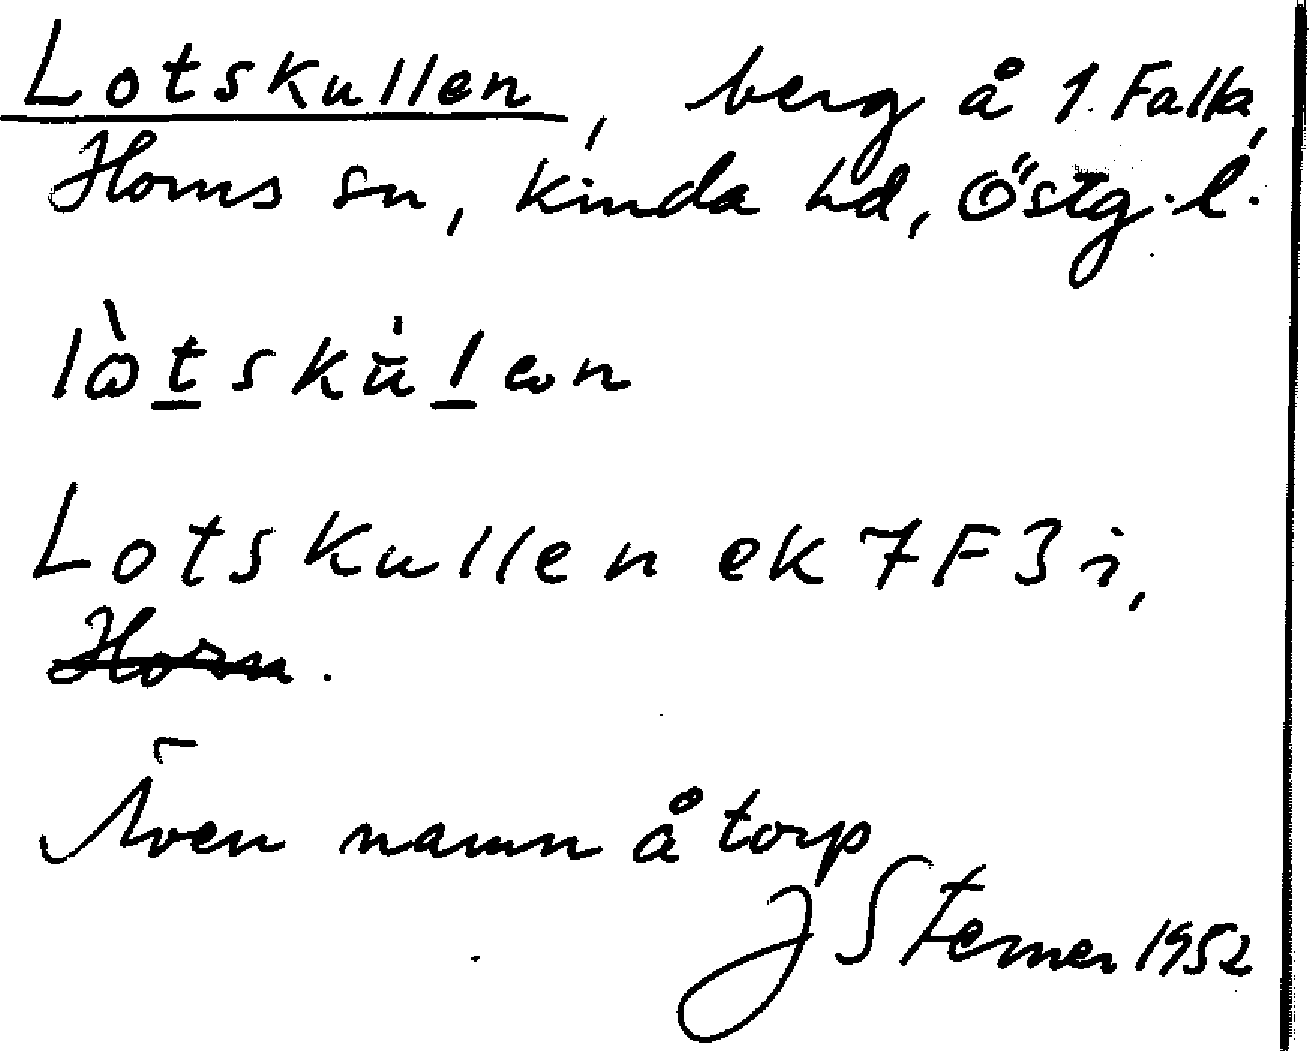 Lotskullen, berg å 1. Falla,
Horns sn, Kinda hd, Östg. l.
lò̀tskù̇lən
Lotskullen ek 7F3i,
Horn.
Även namn å torp
J Sterner 1952